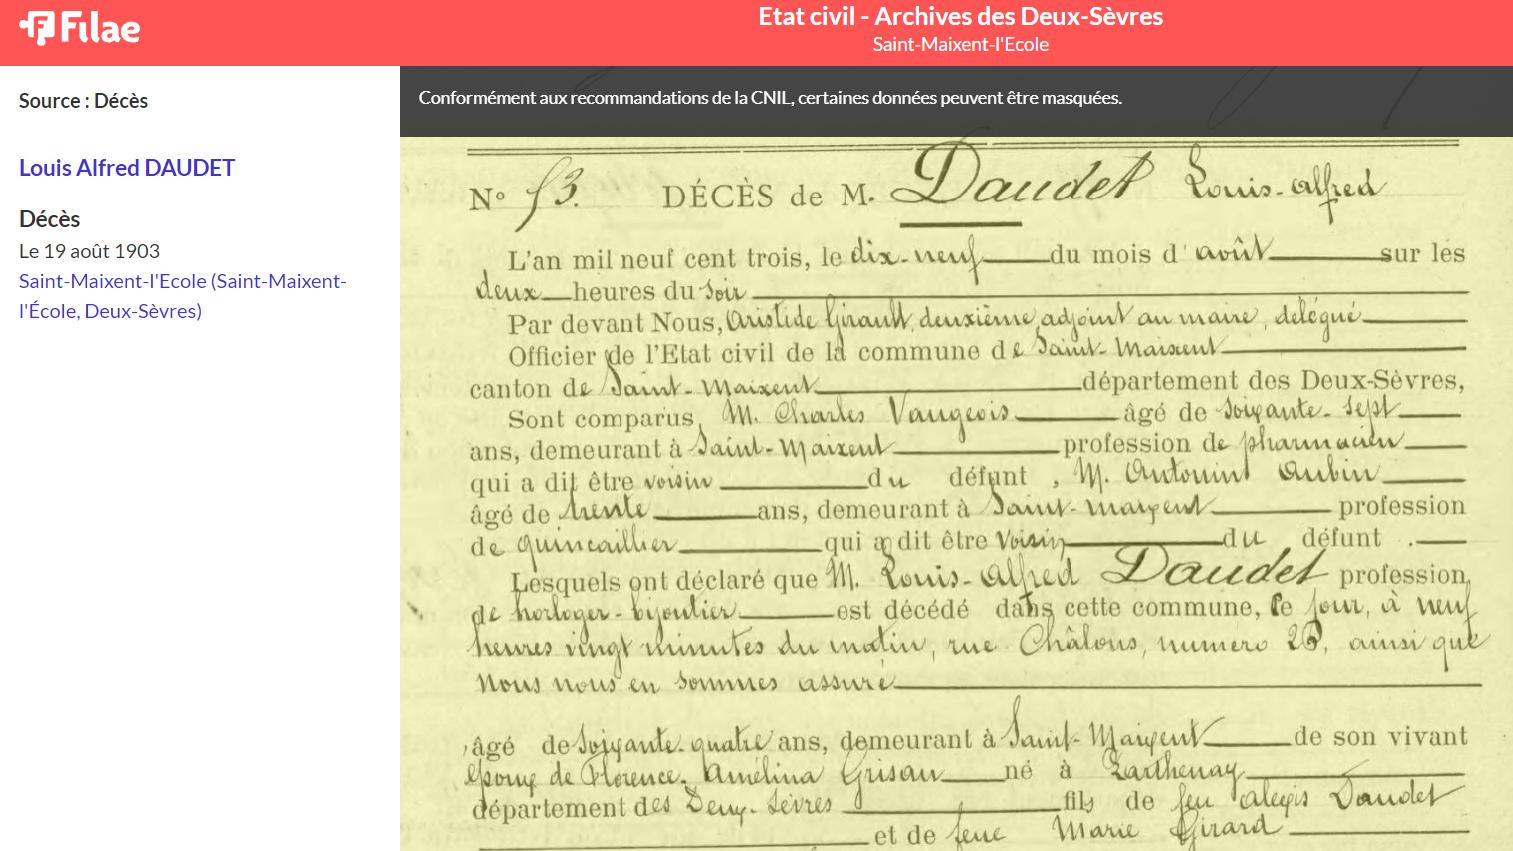 Filae
Etat civil - Archives des Deux-Sèvres
Saint-Maixent-l'Ecole
Source : Décès
Louis Alfred DAUDET
Décès
Le 19 août 1903
Saint-Maixent-l'Ecole (Saint-Maixent-
l'École, Deux-Sèvres)
Conformément aux recommandations de la CNIL, certaines données peuvent être masquées.
N° 53. DÉCÈS de M. Daudet Louis-Alfred
L'an mil neuf cent trois, le dix-neuf du mois d'août sur les
deux heures du soir
Par devant Nous, Aristide Girault, deuxième adjoint au maire, délégué
Officier de l'Etat civil de la commune de Saint-Maixent
canton de Saint-Maixent département des Deux-Sèvres,
Sont comparus, M. Charles Vaugeois âgé de soixante-sept
ans, demeurant à Saint-Maixent profession de pharmacien
qui a dit être voisin du défunt, M. Antonin Aubin
âgé de trente ans, demeurant à Saint-Maixent profession
de quincaillier qui a dit être voisin du défunt.
Lesquels ont déclaré que M. Louis-Alfred Daudet profession
de horloger-bijoutier est décédé dans cette commune, ce jour, à neuf
heures vingt minutes du matin, rue Châlons, numéro ainsi que
nous nous en sommes assuré
âgé de soixante-quatre ans, demeurant à Saint-Maixent de son vivant
époux de Florence-Amélina Grisau né à Parthenay
département des Deux-Sèvres fils de feu Alexis Daudet
et de feue Marie Girard